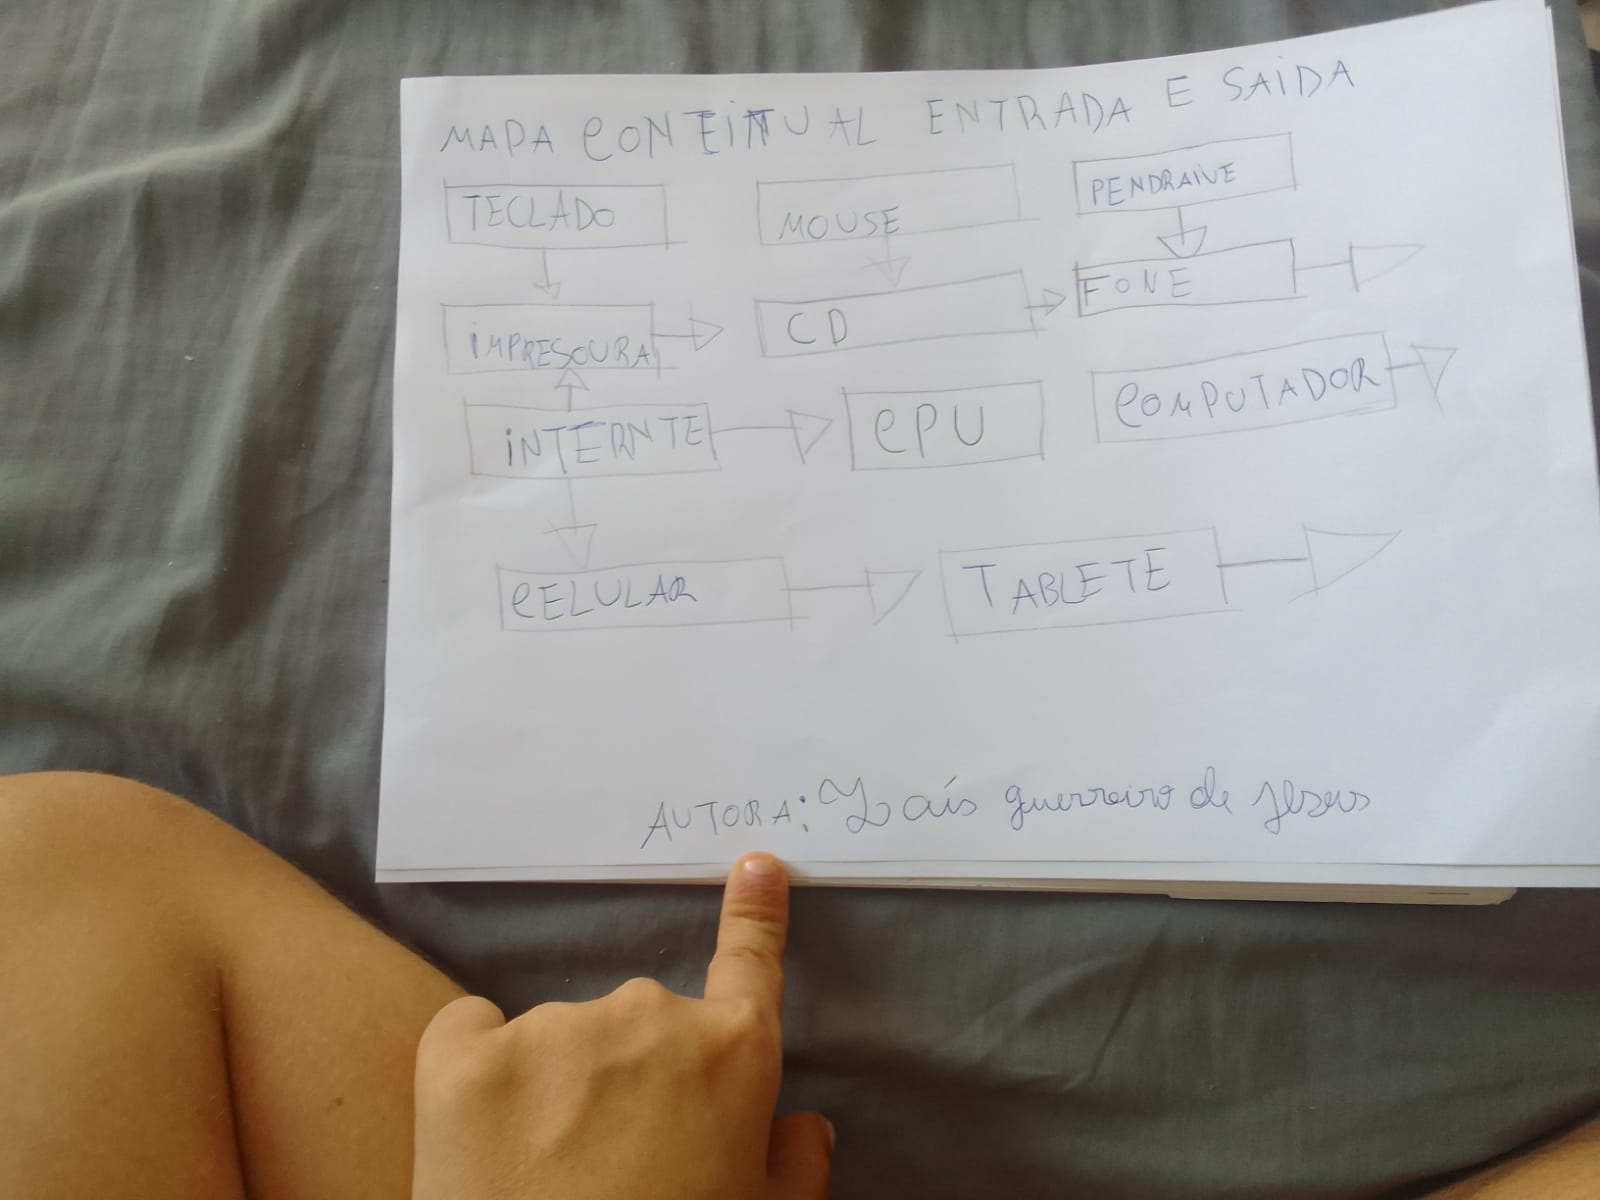 MAPA CONTEITUAL ENTRADA E SAIDA
TECLADO MOUSE PENDRAIVE
IMPRESOURA CD FONE
INTERNTE CPU COMPUTADOR
CELULAR TABLETE
AUTORA: Laís guerreiro de Jesus